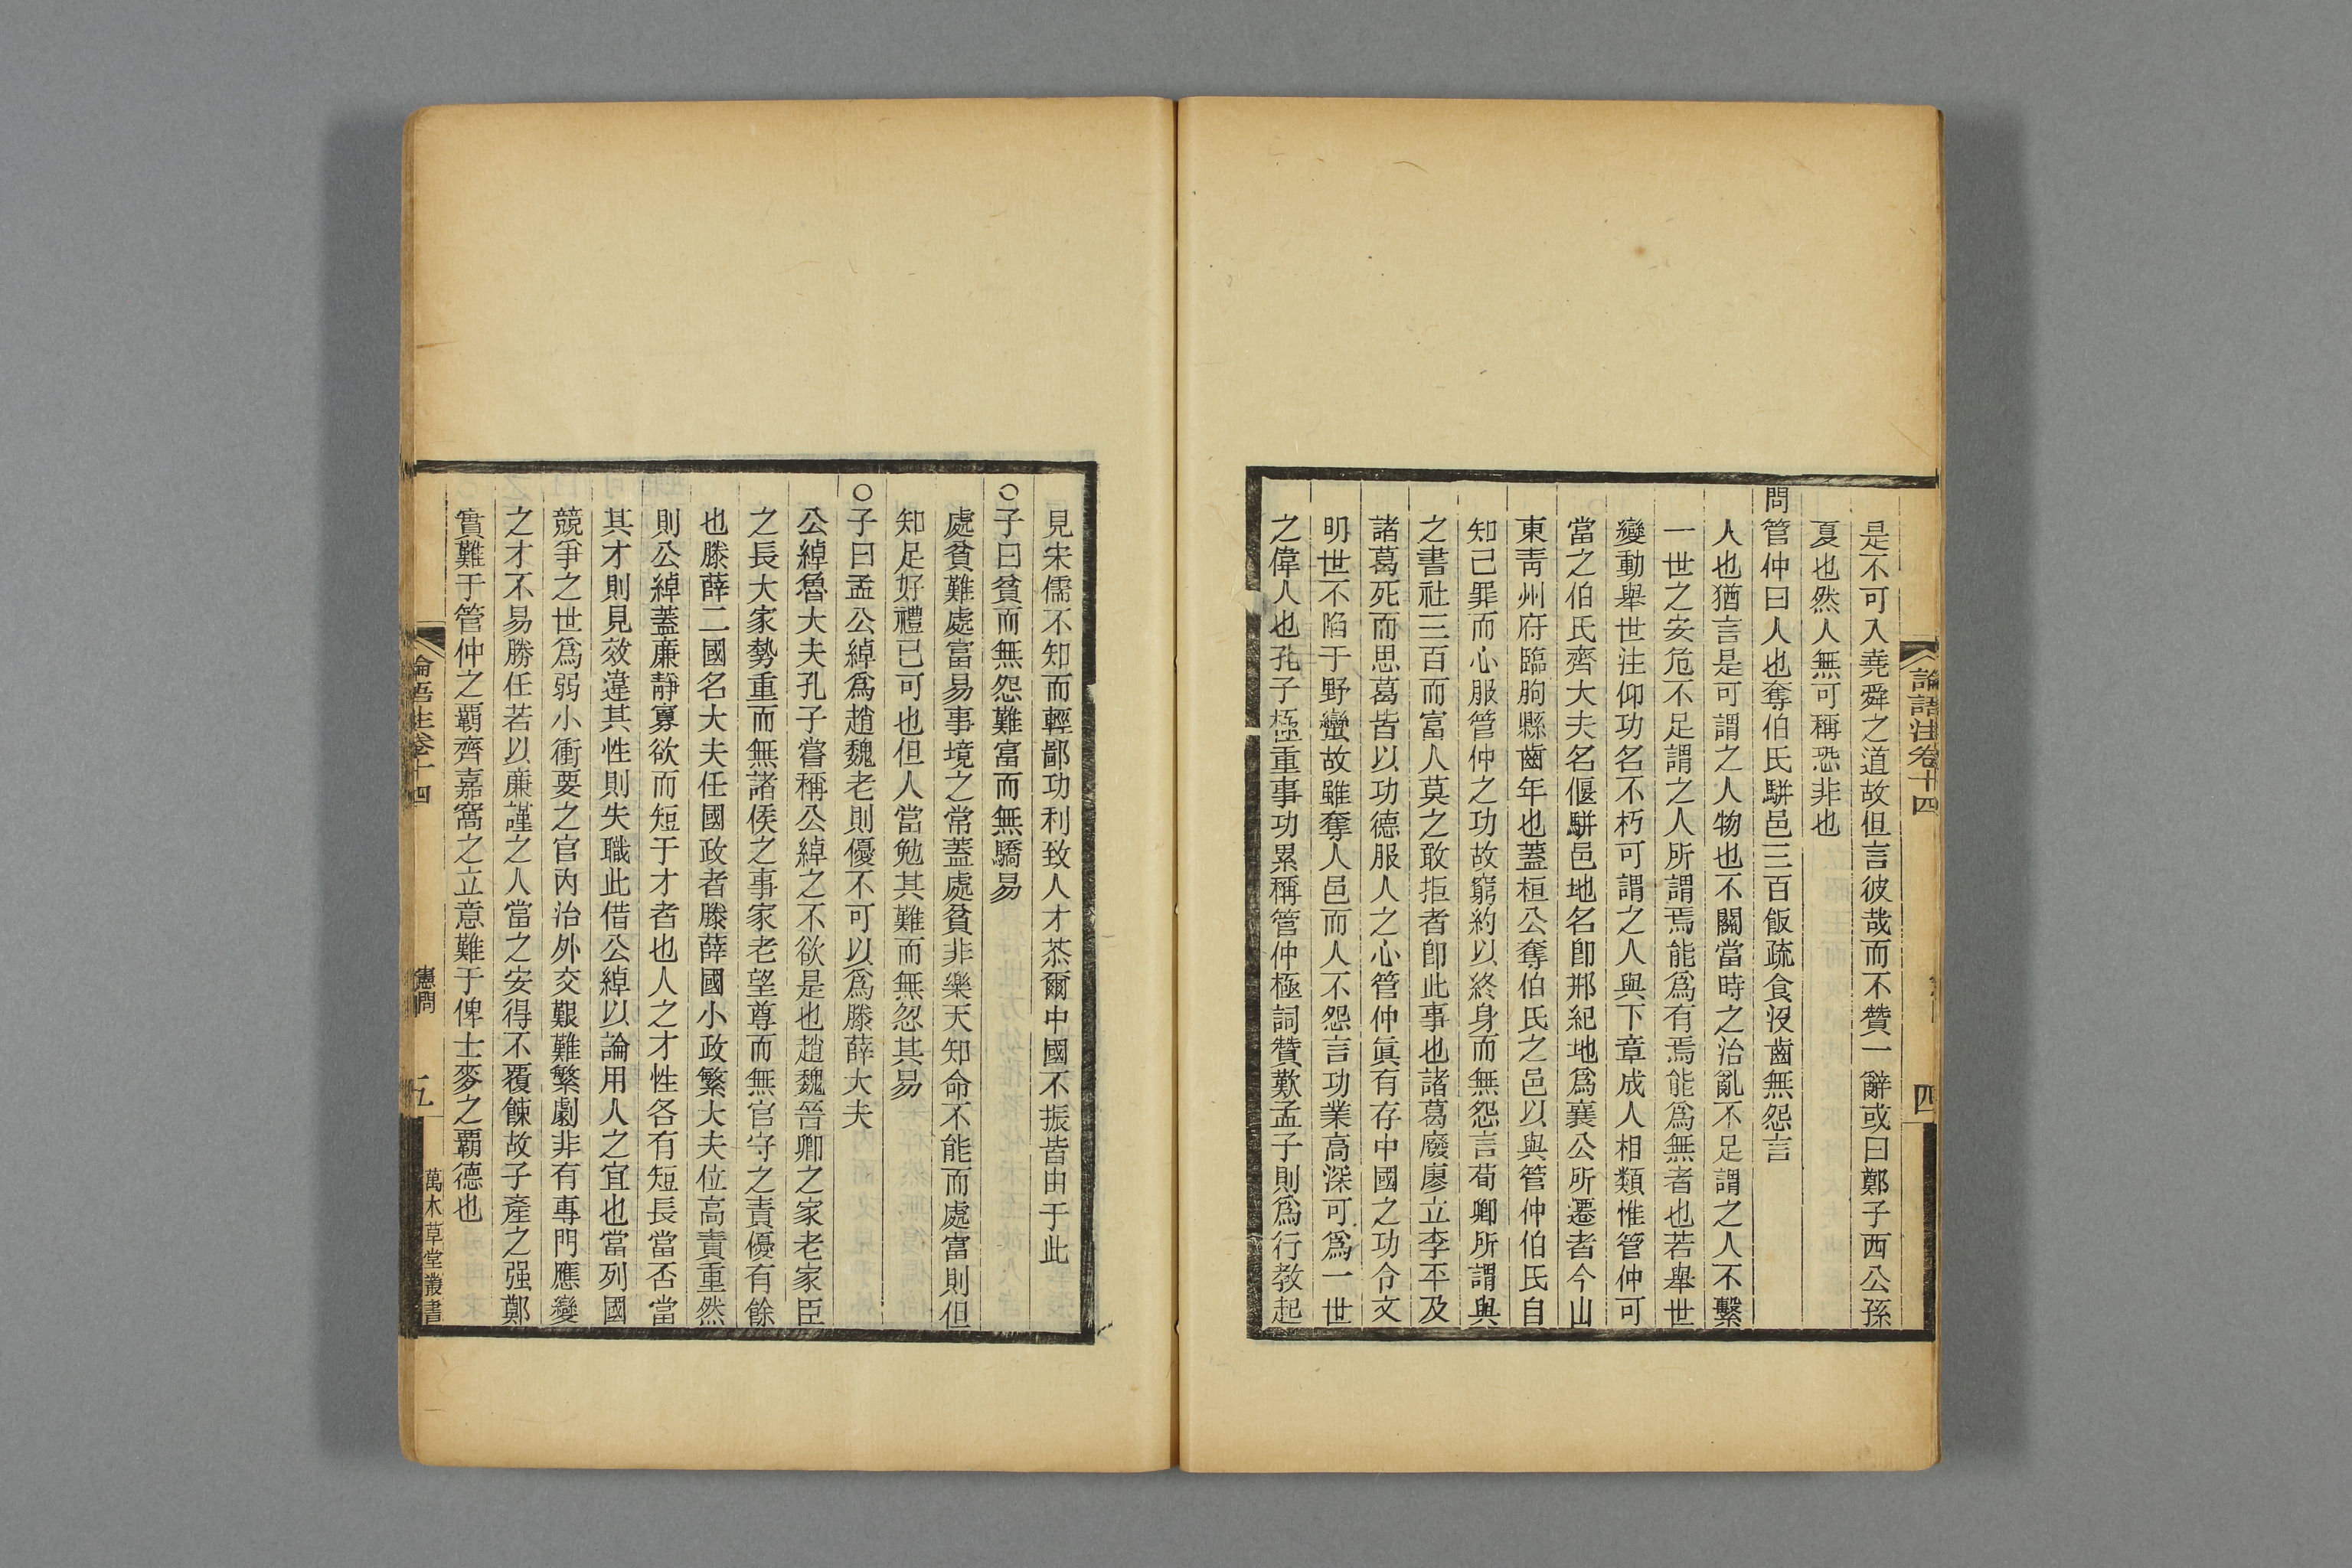 論語注卷十四
四
是不可入堯舜之道故但言彼哉而不贊一辭或曰鄭子西公孫
夏也然人無可稱恐非也
問管仲曰人也奪伯氏駢邑三百飯疏食沒齒無怨言
人也猶言是可謂之人物也不關當時之治亂不足謂之人不繫
一世之安危不足謂之人所謂焉能爲有焉能爲無者也若舉世
變動舉世注仰功名不朽可謂之人與下章成人相類惟管仲可
當之伯氏齊大夫名偃駢邑地名卽邢紀地爲襄公所遷者今山
東靑州府臨朐縣齒年也蓋桓公奪伯氏之邑以與管仲伯氏自
知己罪而心服管仲之功故窮約以終身而無怨言荀卿所謂與
之書社三百而富人莫之敢拒者卽此事也諸葛廢廖立李平及
諸葛死而思葛皆以功德服人之心管仲眞有存中國之功令文
明世不陷于野蠻故雖奪人邑而人不怨言功業高深可爲一世
之偉人也孔子極重事功累稱管仲極詞贊歎孟子則爲行教起
見宋儒不知而輕鄙功利致人才苶爾中國不振皆由于此
○子曰貧而無怨難富而無驕易
處貧難處富易事境之常蓋處貧非樂天知命不能而處富則但
知足好禮已可也但人當勉其難而無忽其易
○子曰孟公綽爲趙魏老則優不可以爲滕薛大夫
公綽魯大夫孔子嘗稱公綽之不欲是也趙魏晉卿之家老家臣
之長大家勢重而無諸侯之事家老望尊而無官守之責優有餘
也滕薛二國名大夫任國政者滕薛國小政繁大夫位高責重然
則公綽蓋廉靜寡欲而短于才者也人之才性各有短長當否當
其才則見效違其性則失職此借公綽以論用人之宜也當列國
競爭之世爲弱小衝要之官內治外交艱難繁劇非有專門應變
之才不易勝任若以廉謹之人當之安得不覆餗故子產之强鄭
實難于管仲之霸齊嘉窩之立意難于俾士麥之霸德也
論語注卷十四
憲問
五
萬木草堂叢書